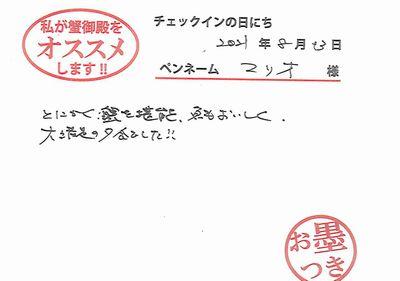 私が蟹御殿を
オススメ
します!!
チェックインの日にち
2021年8月23日
ペンネーム マリオ 様
とにかく蟹を堪能、魚もおいしく、
大満足の夕食でした!!
お墨
つき